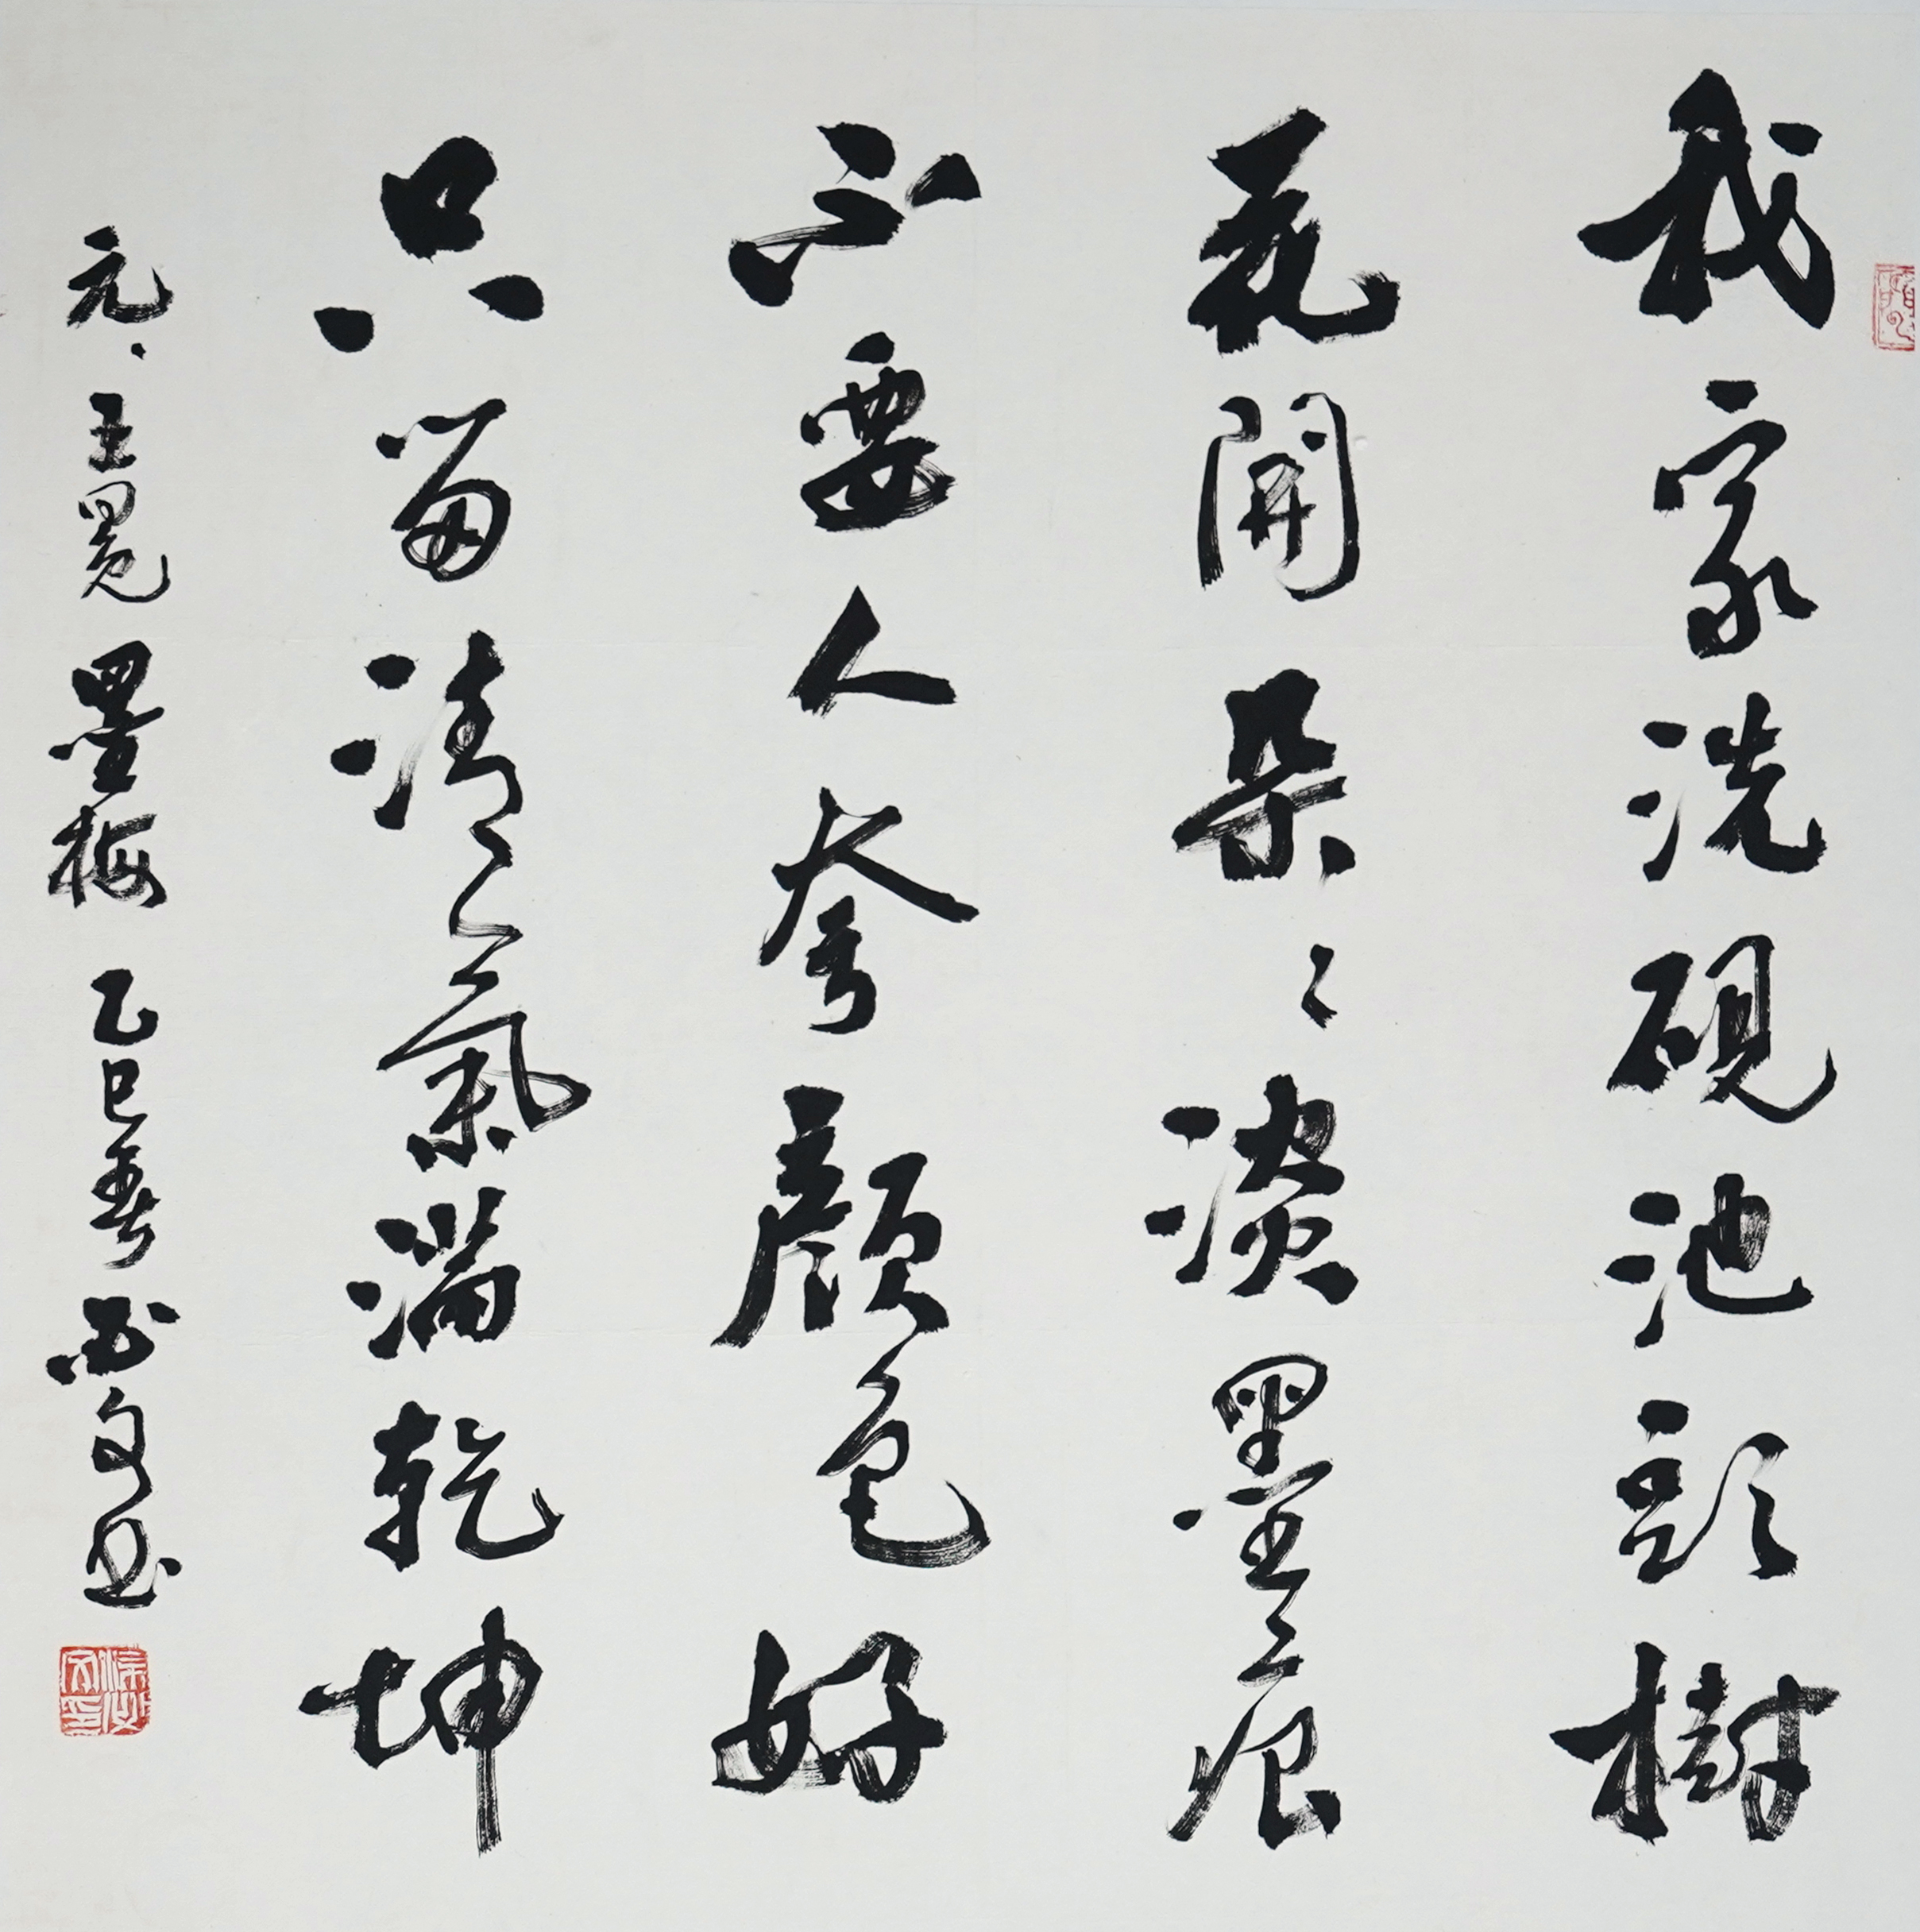 我家洗硯池頭樹
花開朵々淡墨痕
不要人夸顏色好
只留清氣滿乾坤
元、王冕墨梅 乙巳春 必文书